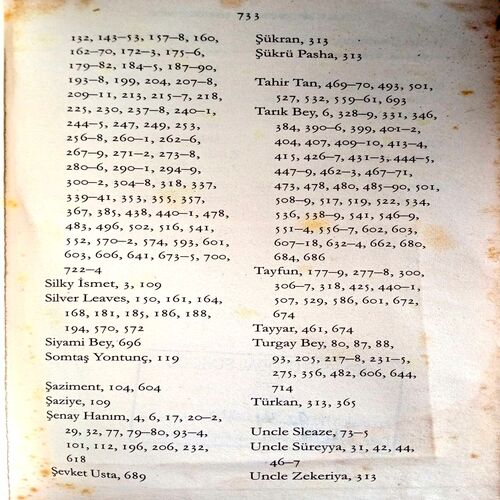 733
132, 143–53, 157–8, 160,
162–70, 172–3, 175–6,
179–82, 184–5, 187–90,
193–8, 199, 204, 207–8,
209–11, 213, 215–7, 218,
225, 230, 237–8, 240–1,
244–5, 247, 249, 253,
256–8, 260–1, 262–6,
267–9, 271–2, 273–8,
280–6, 290–1, 294–9,
300–2, 304–8, 318, 337,
339–41, 353, 355, 357,
367, 385, 438, 440–1, 478,
483, 496, 502, 516, 541,
552, 570–2, 574, 593, 601,
603, 606, 641, 673–5, 700,
722–4
Silky İsmet, 3, 109
Silver Leaves, 150, 161, 164,
168, 181, 185, 186, 188,
194, 570, 572
Siyami Bey, 696
Somtaş Yontunç, 119
Şaziment, 104, 604
Şaziye, 109
Şenay Hanım, 4, 6, 17, 20–2,
29, 32, 77, 79–80, 93–4,
101, 112, 196, 206, 232,
618
Şevket Usta, 689
Şükran, 313
Şükrü Pasha, 313
Tahir Tan, 469–70, 493, 501,
527, 532, 559–61, 693
Tarık Bey, 6, 328–9, 331, 346,
384, 390–6, 399, 401–2,
404, 407, 409–10, 413–4,
415, 426–7, 431–3, 444–5,
447–9, 462–3, 467–71,
473, 478, 480, 485–90, 501,
508–9, 517, 519, 522, 534,
536, 538–9, 541, 546–9,
551–4, 556–7, 602, 603,
607–18, 632–4, 662, 680,
684, 686
Tayfun, 177–9, 277–8, 300,
306–7, 318, 425, 440–1,
507, 529, 586, 601, 672,
674
Tayyar, 461, 674
Turgay Bey, 80, 87, 88,
93, 205, 217–8, 231–5,
275, 356, 482, 606, 644,
714
Türkan, 313, 365
Uncle Sleaze, 73–5
Uncle Süreyya, 31, 42, 44,
46–7
Uncle Zekeriya, 313